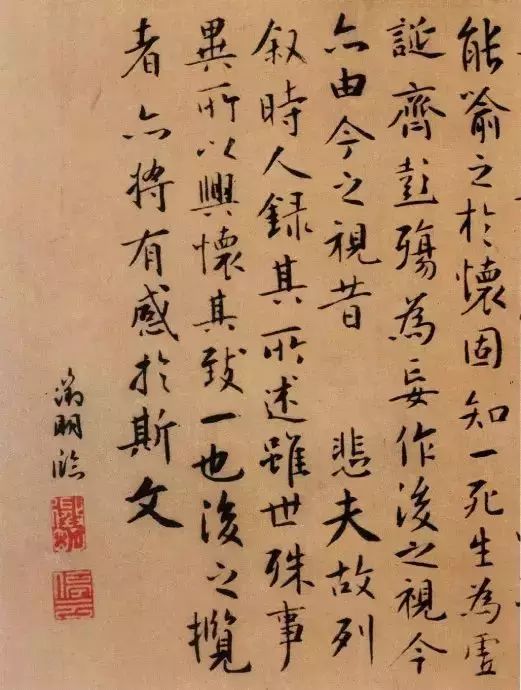 能喻之於懷固知一死生為虛
誕齊彭殤為妄作後之視今
亦由今之視昔 悲夫故列
叙時人録其所述雖世殊事
異所以興懷其致一也後之攬
者亦將有感於斯文
徵明臨